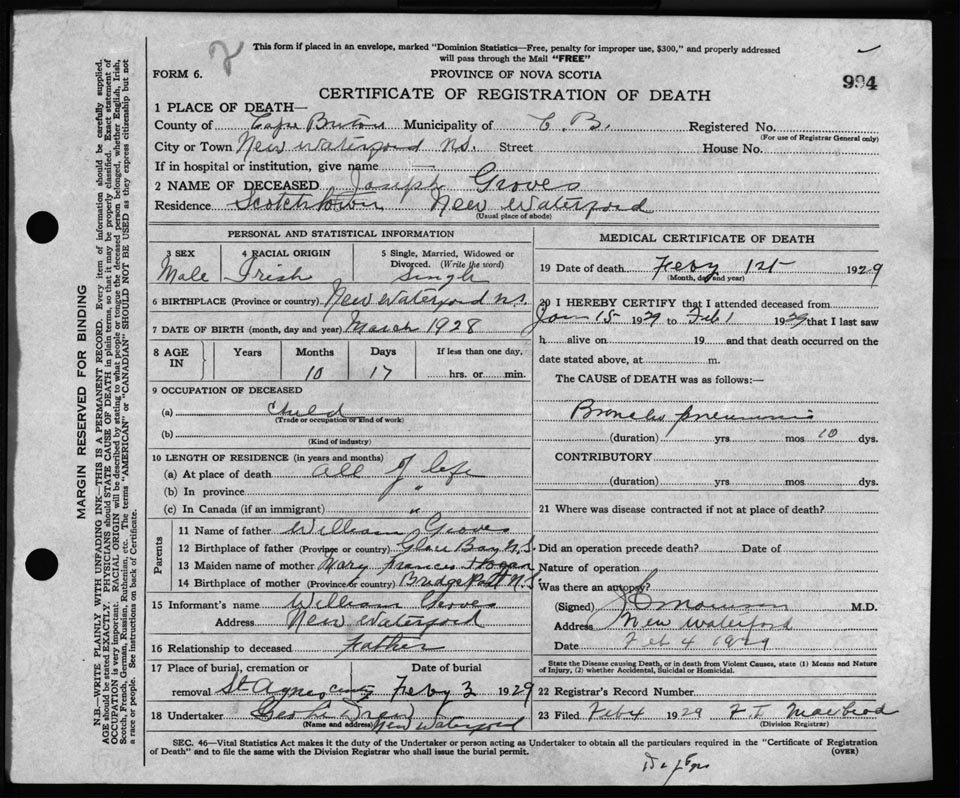 2
This form if placed in an envelope, marked "Dominion Statistics—Free, penalty for improper use, $300," and properly addressed
will pass through the Mail "FREE"
FORM 6.
PROVINCE OF NOVA SCOTIA
994
CERTIFICATE OF REGISTRATION OF DEATH
1 PLACE OF DEATH—
County of Cape Breton Municipality of C. B. Registered No.
(For use of Registrar General only)
City or Town New Waterford N.S. Street House No.
If in hospital or institution, give name
2 NAME OF DECEASED Joseph Groves
Residence Scotchtown New Waterford
(Usual place of abode)
PERSONAL AND STATISTICAL INFORMATION
3 SEX Male
4 RACIAL ORIGIN Irish
5 Single, Married, Widowed or
Divorced. (Write the word)
Single
6 BIRTHPLACE (Province or country) New Waterford N.S.
7 DATE OF BIRTH (month, day and year) March 1928
8 AGE IN Years Months 10 Days 17 If less than one day, hrs. or min.
9 OCCUPATION OF DECEASED
(a) Child
(Trade or occupation or kind of work)
(b)
(Kind of industry)
10 LENGTH OF RESIDENCE (in years and months)
(a) At place of death all of life
(b) In province "
(c) In Canada (if an immigrant) "
Parents
11 Name of father William Groves
12 Birthplace of father (Province or country) Glace Bay N.S.
13 Maiden name of mother Mary Frances Hogan
14 Birthplace of mother (Province or country) Bridgeport N.S.
15 Informant's name William Groves
Address New Waterford
16 Relationship to deceased Father
17 Place of burial, cremation or
removal St Agnes
Date of burial
Feby 3 1929
18 Undertaker Geo
(Name and address) New Waterford
MEDICAL CERTIFICATE OF DEATH
19 Date of death Feby 1st 1929
(Month, day and year)
20 I HEREBY CERTIFY that I attended deceased from
Jan 15 1929 to Feb 1 1929 that I last saw
h alive on 19 and that death occurred on the
date stated above, at m.
The CAUSE of DEATH was as follows:—
Broncho pneumonia
(duration) yrs mos 10 dys.
CONTRIBUTORY
(duration) yrs mos dys.
21 Where was disease contracted if not at place of death?
Did an operation precede death? Date of
Nature of operation
Was there an autopsy?
(Signed) M.D.
Address New Waterford
Date Feb 4 1929
State the Disease causing Death, or in death from Violent Causes, state (1) Means and Nature
of Injury, (2) whether Accidental, Suicidal or Homicidal.
22 Registrar's Record Number
23 Filed Feb 4 1929 MacLeod
(Division Registrar)
SEC. 46—Vital Statistics Act makes it the duty of the Undertaker or person acting as Undertaker to obtain all the particulars required in the "Certificate of Registration
of Death" and to file the same with the Division Registrar who shall issue the burial permit.
(OVER)
MARGIN RESERVED FOR BINDING
N.B.—WRITE PLAINLY WITH UNFADING INK—THIS IS A PERMANENT RECORD. Every item of information should be carefully supplied.
AGE should be stated EXACTLY. PHYSICIANS should STATE CAUSE OF DEATH in plain terms, so that it may be properly classified. Exact statement of
OCCUPATION is very important. RACIAL ORIGIN will be described by stating to what people or tongue the deceased person belonged, whether English, Irish,
Scotch, French, German, Russian, Ruthenian, etc. The terms "AMERICAN" or "CANADIAN" SHOULD NOT BE USED as they express citizenship but not
a race or people. See instructions on back of Certificate.